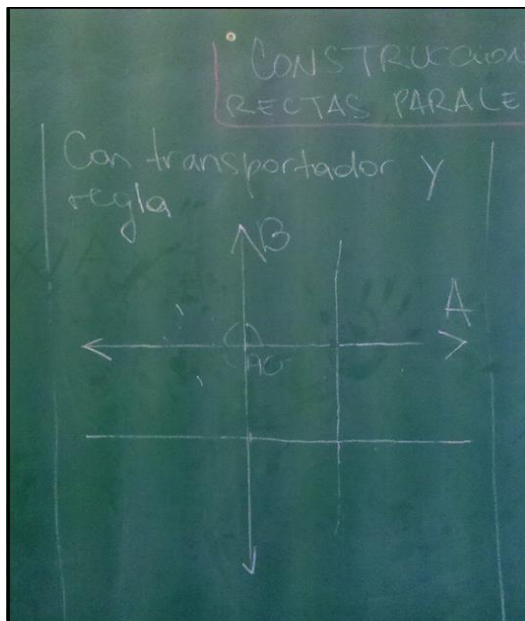 CONSTRUCCION
RECTAS PARALE
Con transportador y
regla
B
A